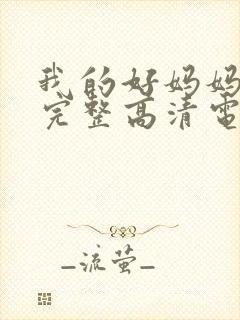 我的好妈妈
完整高清电
_流萤_